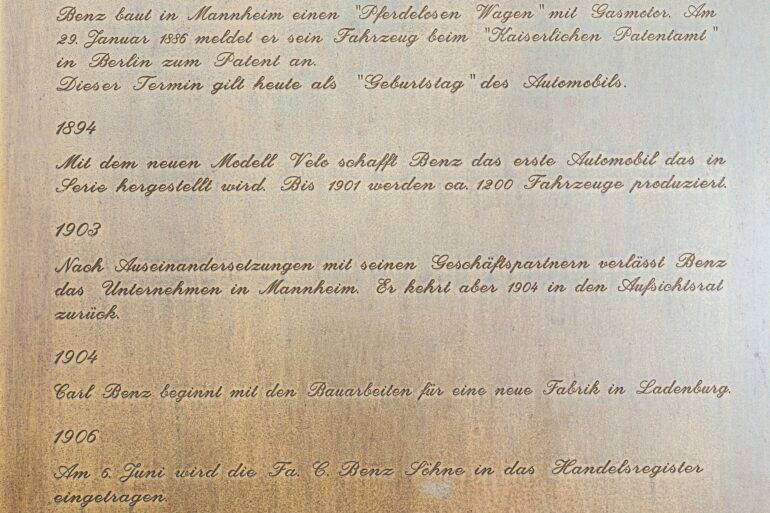 Benz baut in Mannheim einen "Pferdelosen Wagen" mit Gasmotor. Am
29. Januar 1886 meldet er sein Fahrzeug beim "Kaiserlichen Patentamt"
in Berlin zum Patent an.
Dieser Termin gilt heute als "Geburtstag" des Automobils.
1894
Mit dem neuen Modell Velo schafft Benz das erste Automobil das in
Serie hergestellt wird. Bis 1901 werden ca. 1200 Fahrzeuge produziert.
1903
Nach Auseinandersetzungen mit seinen Geschäftspartnern verlässt Benz
das Unternehmen in Mannheim. Er kehrt aber 1904 in den Aufsichtsrat
zurück.
1904
Carl Benz beginnt mit den Bauarbeiten für eine neue Fabrik in Ladenburg.
1906
Am 6. Juni wird die Fa. C. Benz Söhne in das Handelsregister
eingetragen.